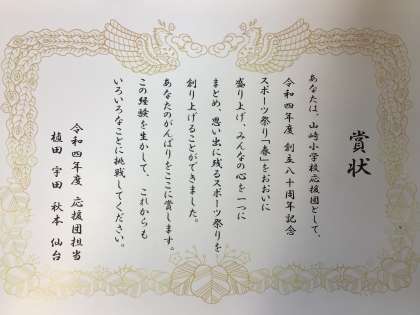 賞状
あなたは、山崎小学校応援団として、
令和四年度 創立八十周年記念
スポーツ祭り「春」をおおいに
盛り上げ、みんなの心を一つに
まとめ、思い出に残るスポーツ祭りを
創り上げることができました。
あなたのがんばりをここに賞します。
この経験を生かして、これからも
いろいろなことに挑戦してください。
令和四年度 応援団担当
植田 宇田 秋本 仙台